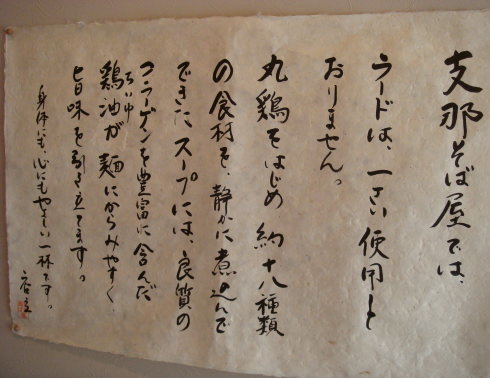 支那そば屋では、
ラードは、一さい使用して
おりません。
丸鶏をはじめ約十八種類
の食材を、静かに煮込んで
できたスープには、良質の
コラーゲンを豊富に含んだ
鶏油が麺にからみやすく、
ちいゆ
旨味を引き立てます。
身体にも、心にもやさしい一杯です。